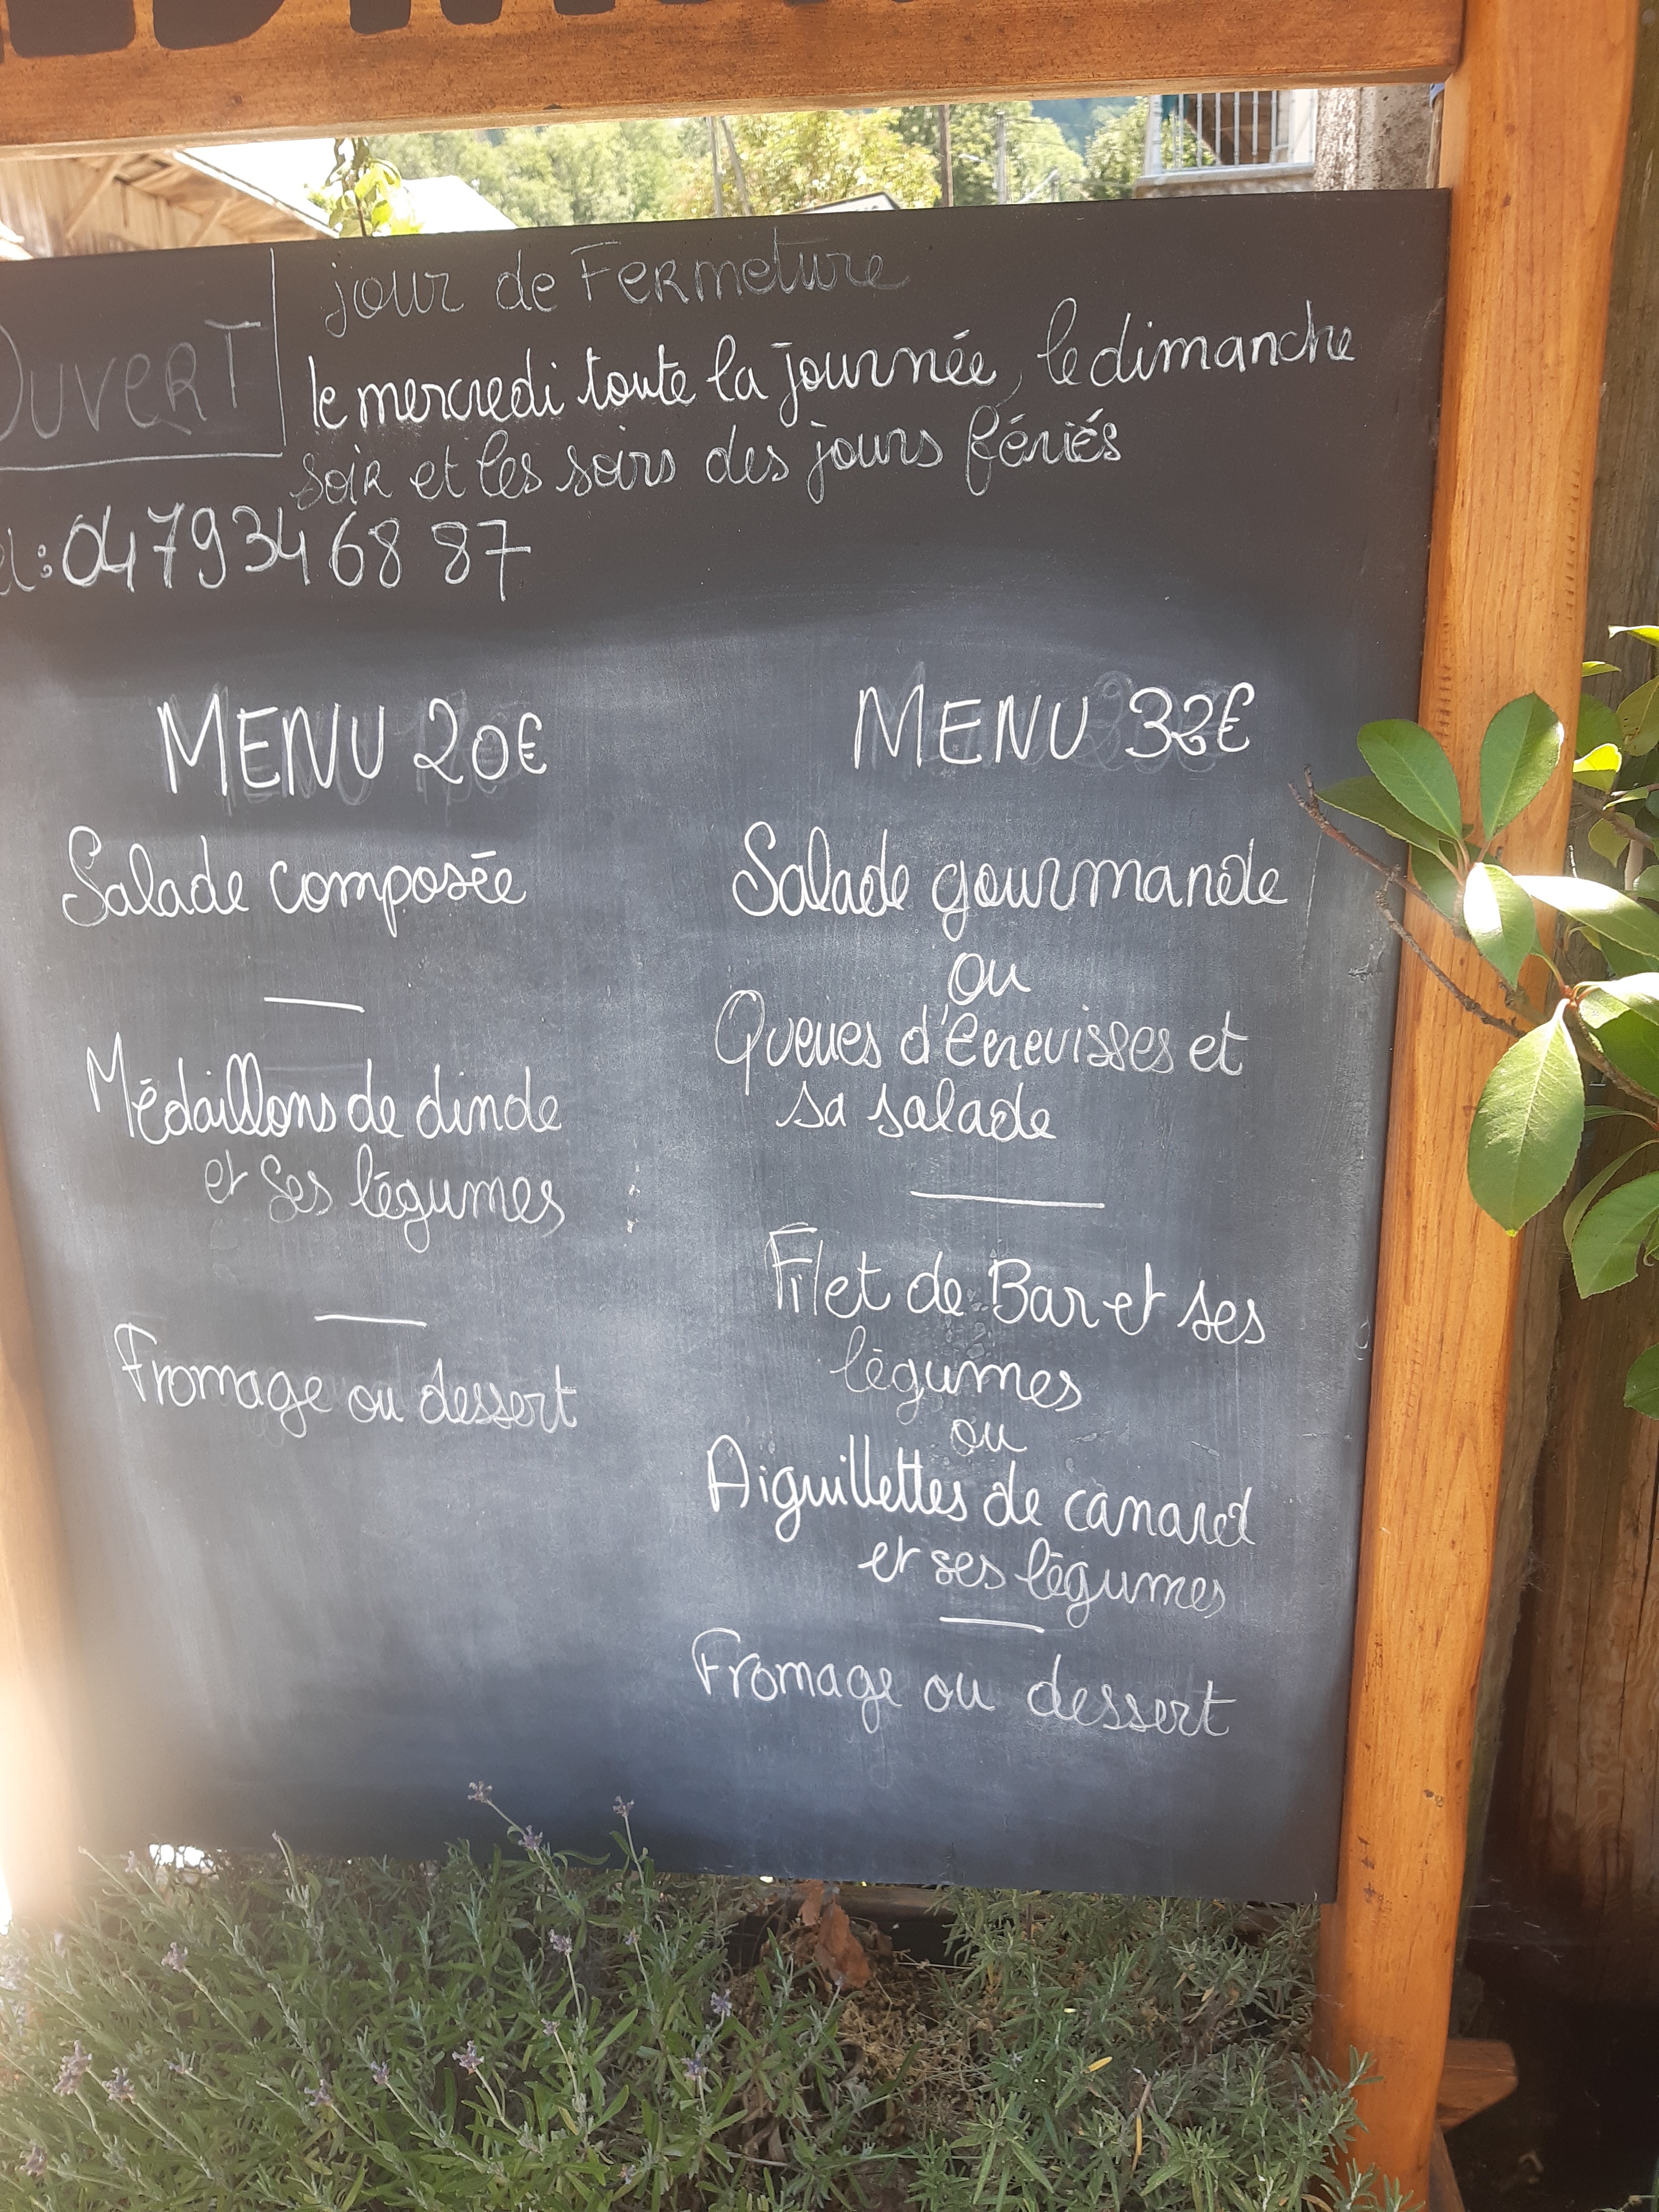 OUVERT
jour de Fermeture
le mercredi toute la journée, le dimanche
soir et les soirs des jours fériés
el: 04 79 34 68 87
MENU 20€
Salade composée
Médaillons de dinde
et ses légumes
Fromage ou dessert
MENU 32€
Salade gourmande
ou
Queues d'Ecrevisses et
sa salade
Filet de Bar et ses
légumes
ou
Aiguillettes de canard
et ses légumes
Fromage ou dessert